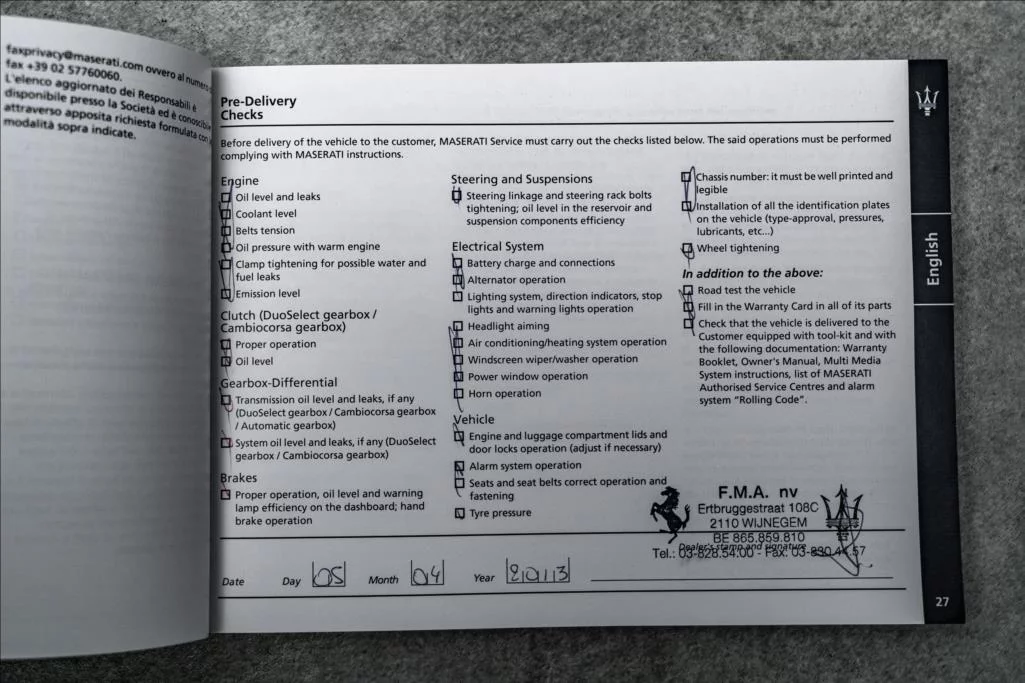 faxprivacy@maserati.com ovvero al numero
fax +39 02 57760060.
L'elenco aggiornato dei Responsabili è
disponibile presso la Società ed è conoscibile
attraverso apposita richiesta formulata con
modalità sopra indicate.
Pre-Delivery
Checks
Before delivery of the vehicle to the customer, MASERATI Service must carry out the checks listed below. The said operations must be performed
complying with MASERATI instructions.
Engine
Oil level and leaks
Coolant level
Belts tension
Oil pressure with warm engine
Clamp tightening for possible water and
fuel leaks
Emission level
Clutch (DuoSelect gearbox /
Cambiocorsa gearbox)
Proper operation
Oil level
Gearbox-Differential
Transmission oil level and leaks, if any
(DuoSelect gearbox / Cambiocorsa gearbox
/ Automatic gearbox)
System oil level and leaks, if any (DuoSelect
gearbox / Cambiocorsa gearbox)
Brakes
Proper operation, oil level and warning
lamp efficiency on the dashboard; hand
brake operation
Steering and Suspensions
Steering linkage and steering rack bolts
tightening; oil level in the reservoir and
suspension components efficiency
Electrical System
Battery charge and connections
Alternator operation
Lighting system, direction indicators, stop
lights and warning lights operation
Headlight aiming
Air conditioning/heating system operation
Windscreen wiper/washer operation
Power window operation
Horn operation
Vehicle
Engine and luggage compartment lids and
door locks operation (adjust if necessary)
Alarm system operation
Seats and seat belts correct operation and
fastening
Tyre pressure
Chassis number: it must be well printed and
legible
Installation of all the identification plates
on the vehicle (type-approval, pressures,
lubricants, etc...)
Wheel tightening
In addition to the above:
Road test the vehicle
Fill in the Warranty Card in all of its parts
Check that the vehicle is delivered to the
Customer equipped with tool-kit and with
the following documentation: Warranty
Booklet, Owner's Manual, Multi Media
System instructions, list of MASERATI
Authorised Service Centres and alarm
system "Rolling Code".
F.M.A. nv
Ertbruggestraat 108C
2110 WIJNEGEM
BE 865.859.810
Dealer's stamp and signature
Tel.: 03-828.54.00 - Fax: 03-830.44.57
Date Day 05 Month 04 Year 2013
English
27